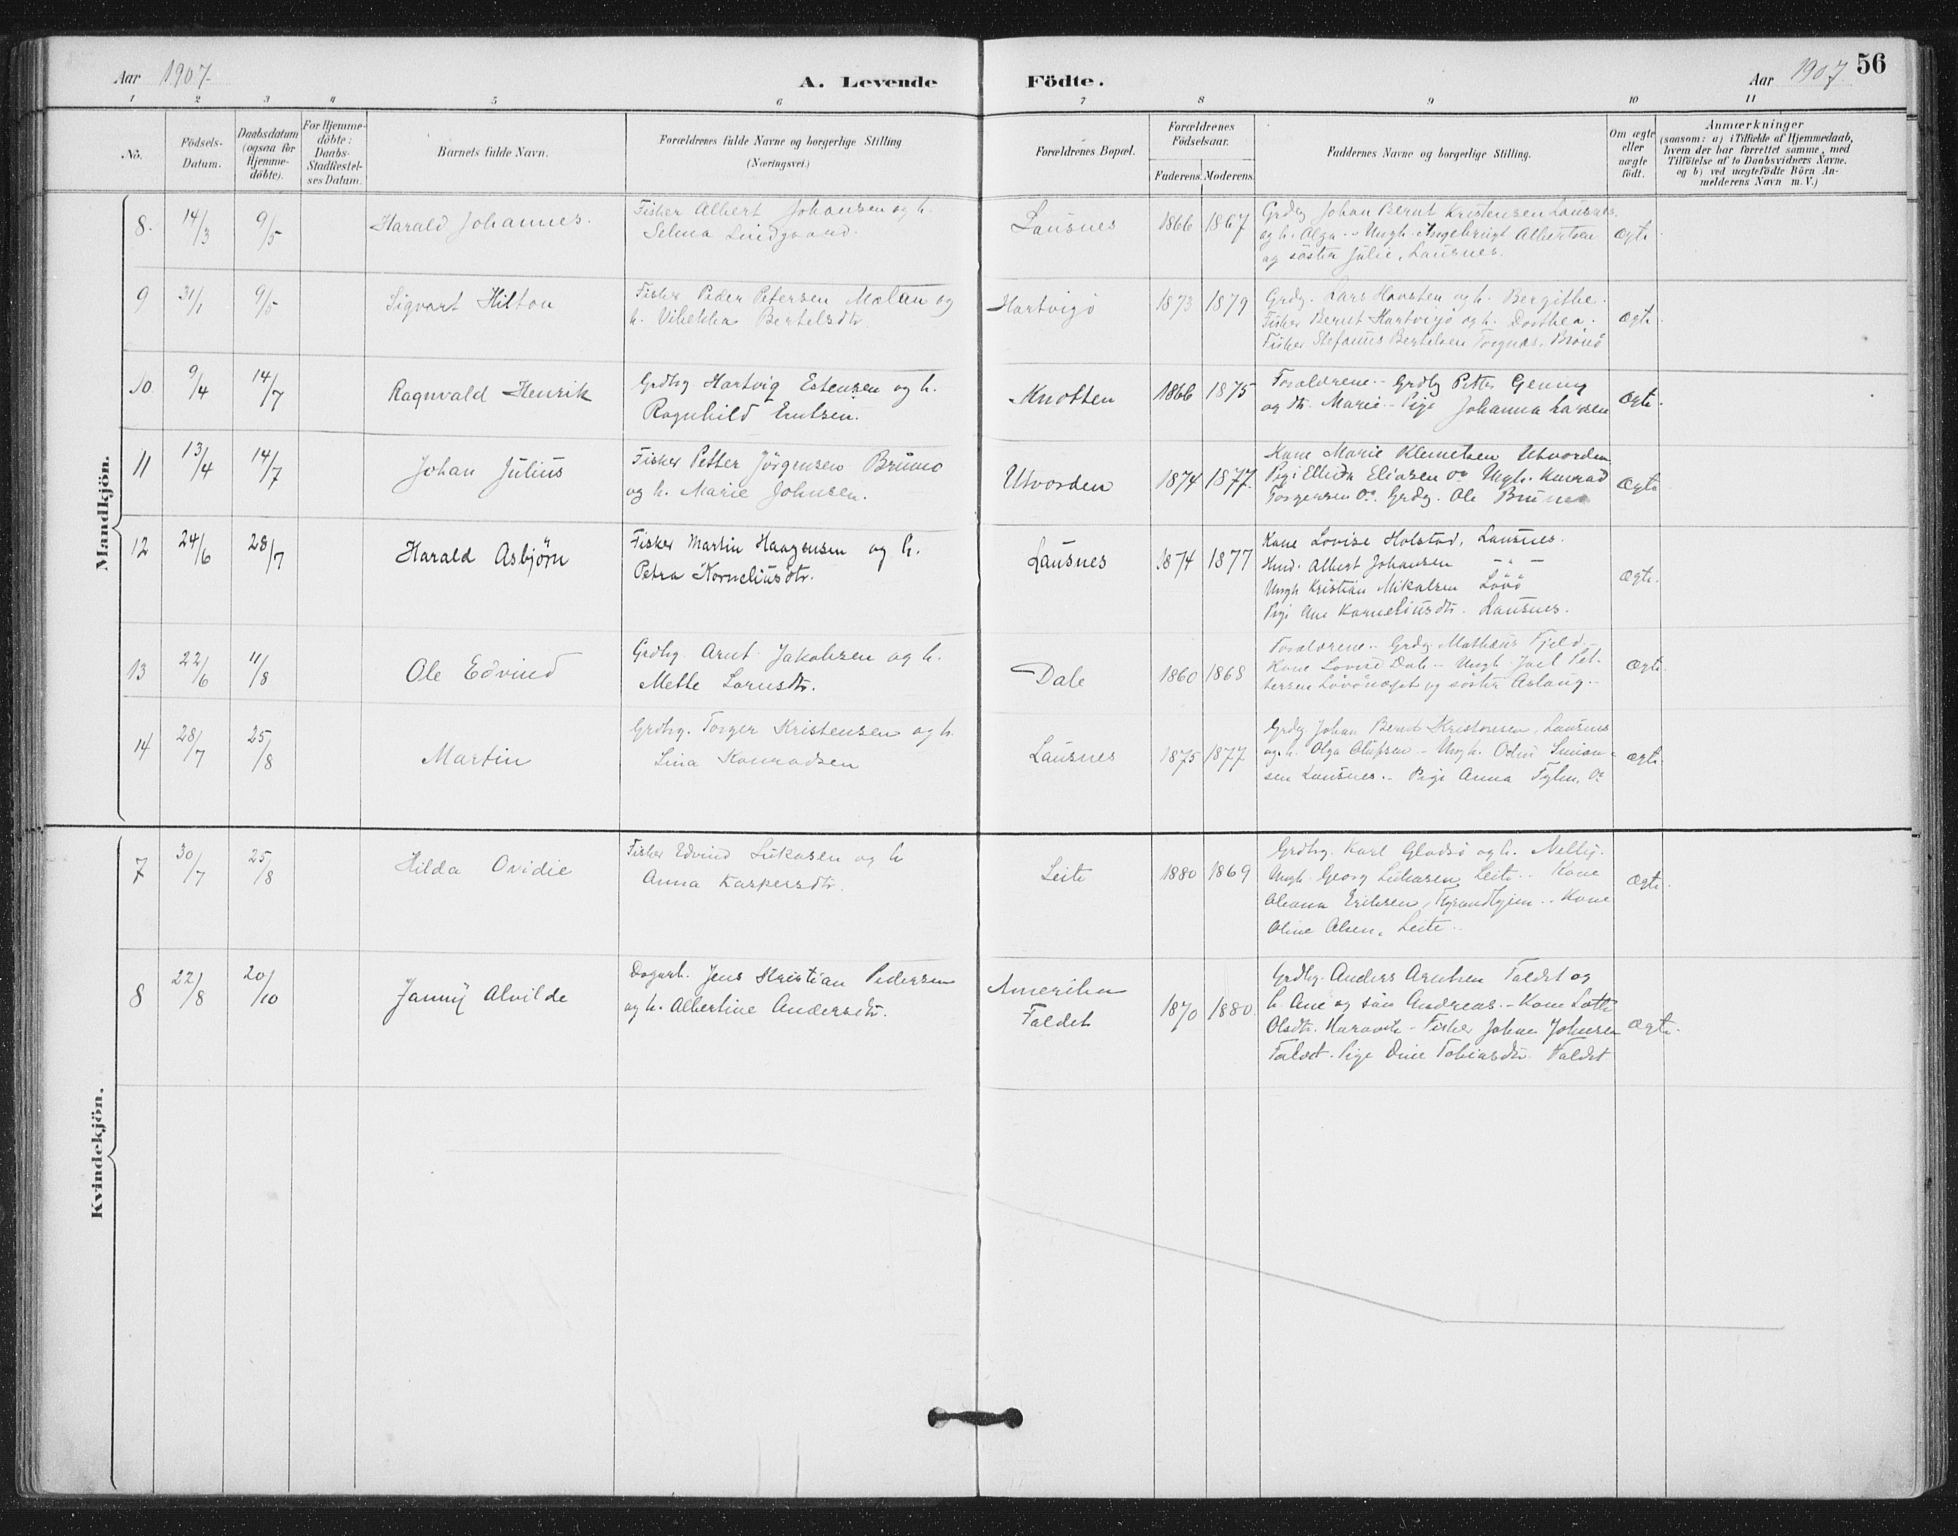 Aar 1907.
A. Levende Födte.
Aar 1907.
56
1 2 3 4 5 6 7 8 9 10 11
No. Födsels-Datum. Daabsdatum (ogsaa for Hjemme-döbte). For Hjemme-döbte: Daabs-Stadfæstel-ses Datum. Barnets fulde Navn. Forældrenes fulde Navne og borgerlige Stilling (Næringsvei.) Forældrenes Bopæl. Forældrenes Födselsaar. Faderens. Moderens. Faddernes Navne og borgerlige Stilling. Om ægte eller uægte födt. Anmærkninger (saasom: a) i Tilfælde af Hjemmedaab, hvem der har forrettet samme, med Tilföielse af to Daabsvidners Navne. og b) ved uægtefödte Börn An-melderens Navn m. V.)
Mandkjön.
8. 14/3 9/5 Harald Johannes.
Fisker Albert Johansen og h.
Selma Lindgaard.
Lausnes 1866 1867
Grdbg Johan Bernt Kristensen Lausnes
og h. Olga. - Ungk. Ingebrigt Albertsen
og söster Julie, Lausnes.
Ægte
9 31/1 9/5 Sigvart Hilton
Fisker Peder Petersen Mælan og
h. Vibekka Bertelsdtr.
Hartvigö 1873 1879
Grdbg. Lars Havsten og h. Bergithe.
Fisker Bernt Hartvigö og h. Dorthea.
Fisker Stefanus Bertelsen Torgnes, Brönö
Ægte
10. 9/4 14/7 Ragnvald Henrik
Grdbg Hartvig Estensen og h.
Ragnhild Emtsen.
Knotten 1866 1875
Forældrene. - Grdbg Petter Genmg
og dtr. Marie - Pige Johanna Larsen
Ægte.
11 13/4 14/7 Johan Julius
Fisker Petter Jörgensen Brûmo
og h. Marie Johnsen.
Utvorden 1874 1877.
Kone Marie Klemetsen Utvorden
Pige Ellida Eliasen Do Ungk. Konrad
Jörgensen Do. Grdbg. Ole
Ægte
12 24/6 28/7 Harald Asbjörn
Fisker Martin Haagensen og h.
Petra Korneliusdtr.
Lausnes 1874 1877
Kone Lovise Holstad, Lausnes.
Hmd. Albert Johansen - " -
Ungk Kristian Mikalsen Lövö
Pige Ane Korneliusdtr. Lausnes.
Ægte.
13 22/6 11/8 Ole Edvind
Grdbg. Arnt Jakobsen og h.
Mette Larnsdtr.
Dale 1860 1868
Forældrene. - Grdbg Mathæus Fjeld -
Kone Lovise Dale - Ungk Joel Pet-
tersen Lövönæset og söster Aslaug. -
Ægte.
14 28/7 25/8 Martin
Grdbg. Torger Kristensen og h.
Lina Konradsen
Lausnes 1875 1877
Grdbg Johan Bernt Kristensen, Lausnes
og h. Olga Olufsen - Ungk. Odin Simon-
sen Lausnes. - Pige Anna Do
Ægte.
Kvindekjön.
7 30/7 25/8 Hilda Ovidie
Fisker Edvind Lukasen og h
Anna Kaspersdtr.
Leite 1880 1869
Grdbg. Karl Gladsö og h. Nelly.
Ungk. Georg Lukasen, Leite. - Kone
Oleana Eriksen, - Kone
Oline Olsen, Leite.
Ægte.
8 22/8 20/10 Janny Alvilde
Dagarb. Jens Kristian Pedersen
og h. Albertine Andersdtr.
Amerika
Faldet
1870 1880.
Grdbg. Anders Arntsen Faldet og
h. Ane og sön Andreas. - Kone Lotte
Olsdtr. - Fisker Johan Johnsen
Faldet. Pige Dine Tobiasdtr. Faldet
Ægte.